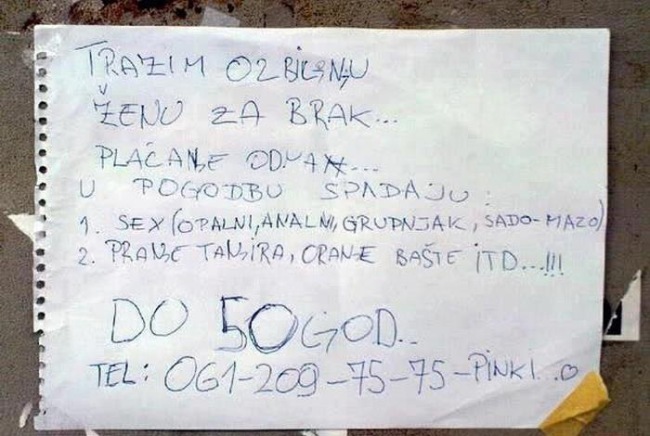 TRAZIM OZBILJNU
ŽENU ZA BRAK...
PLAĆANJE ODMAX...
U POGODBU SPADAJU:
1. SEX (OPALNI, ANALNI, GRUPNJAK, SADO-MAZO)
2. PRANJE TANJIRA, ORANJE BAŠTE ITD...!!!
DO 50 GOD..
TEL: 061-209-75-75-PINKI...